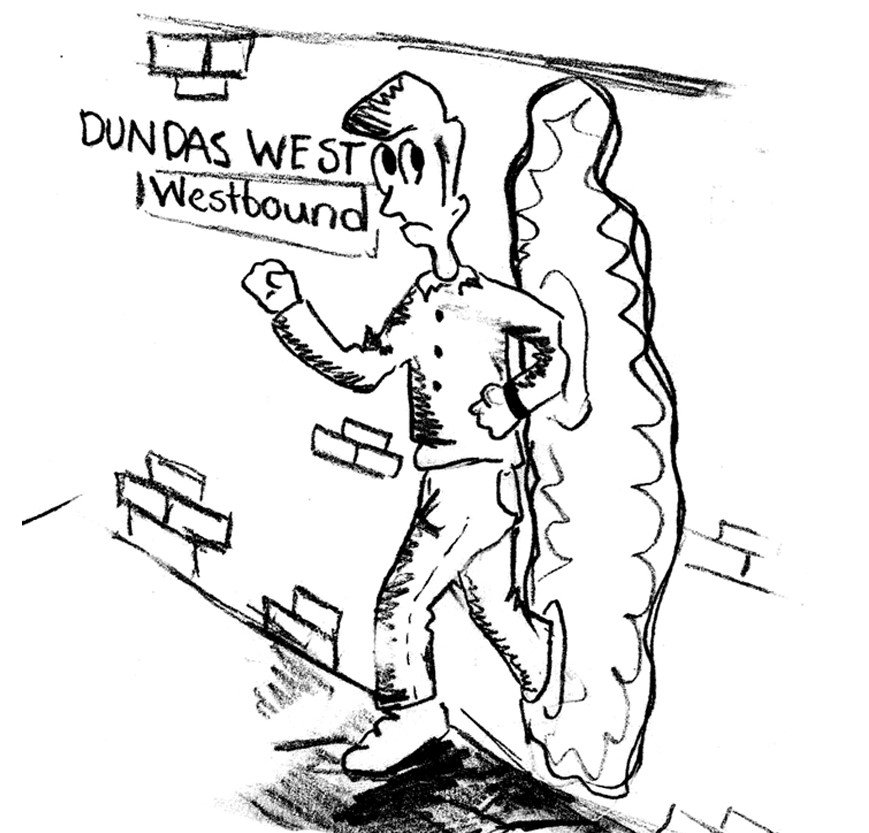 DUNDAS WEST
Westbound